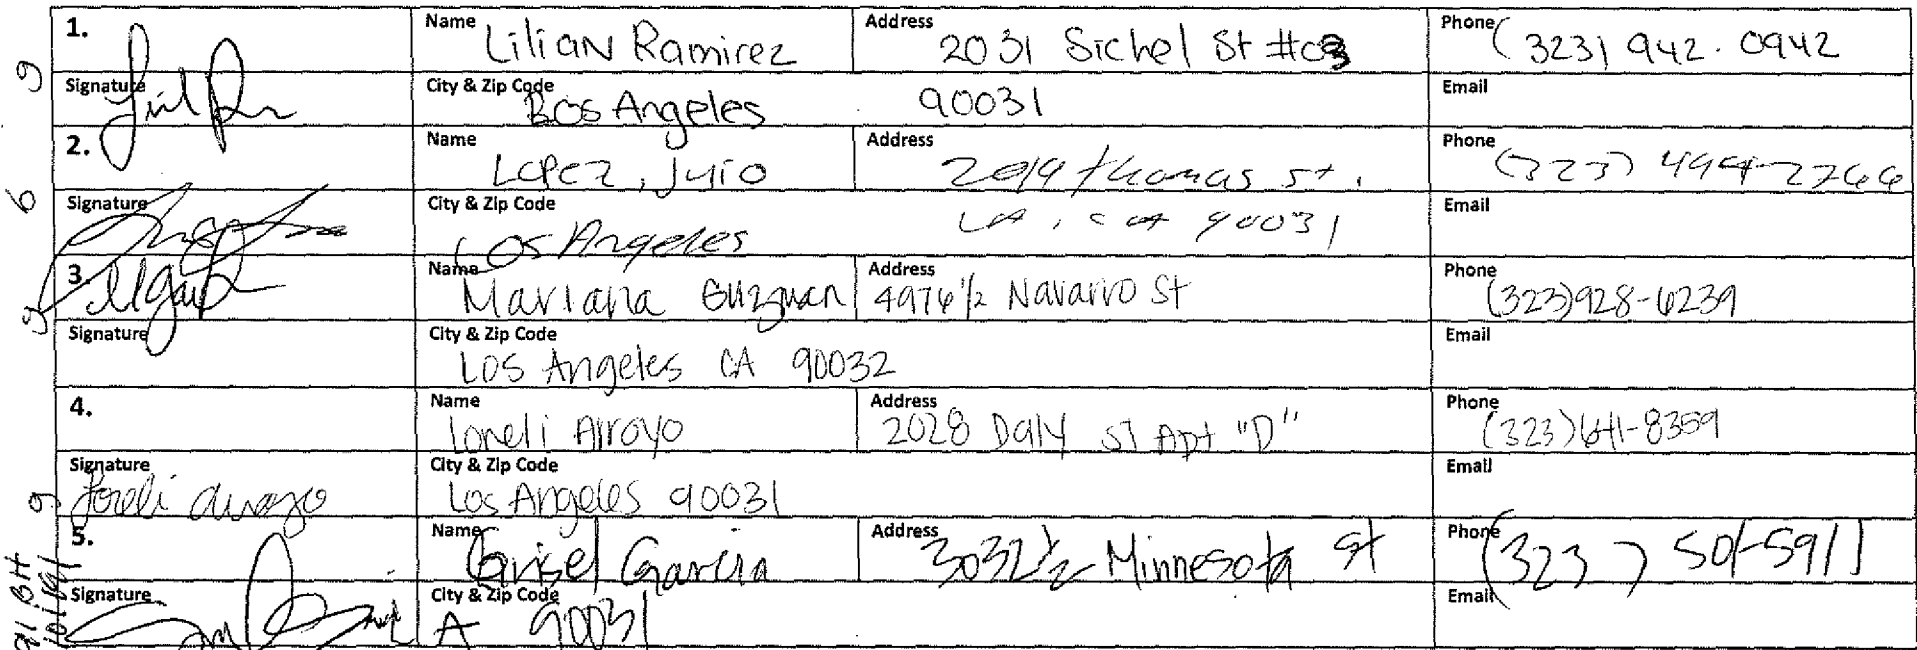 1. Name Lilian Ramirez Address 2031 Sichel St #03 Phone (323) 942.0942
Signature City & Zip Code Los Angeles 90031 Email
2. Name Lopez, Julio Address thomas st. Phone (323)
Signature City & Zip Code Los Angeles LA, CA 90031 Email
3. Name Mariana Guzman Address 4976 1/2 Navarro St Phone (323)928-6239
Signature City & Zip Code Los Angeles CA 90032 Email
4. Name Loreli Arroyo Address 2028 Daly St Apt "D" Phone (323)641-8359
Signature Loreli Arroyo City & Zip Code Los Angeles 90031 Email
5. Name Grisel Garcia Address 3032 1/2 Minnesota St Phone (323) 501-5911
Signature City & Zip Code A 90031 Email